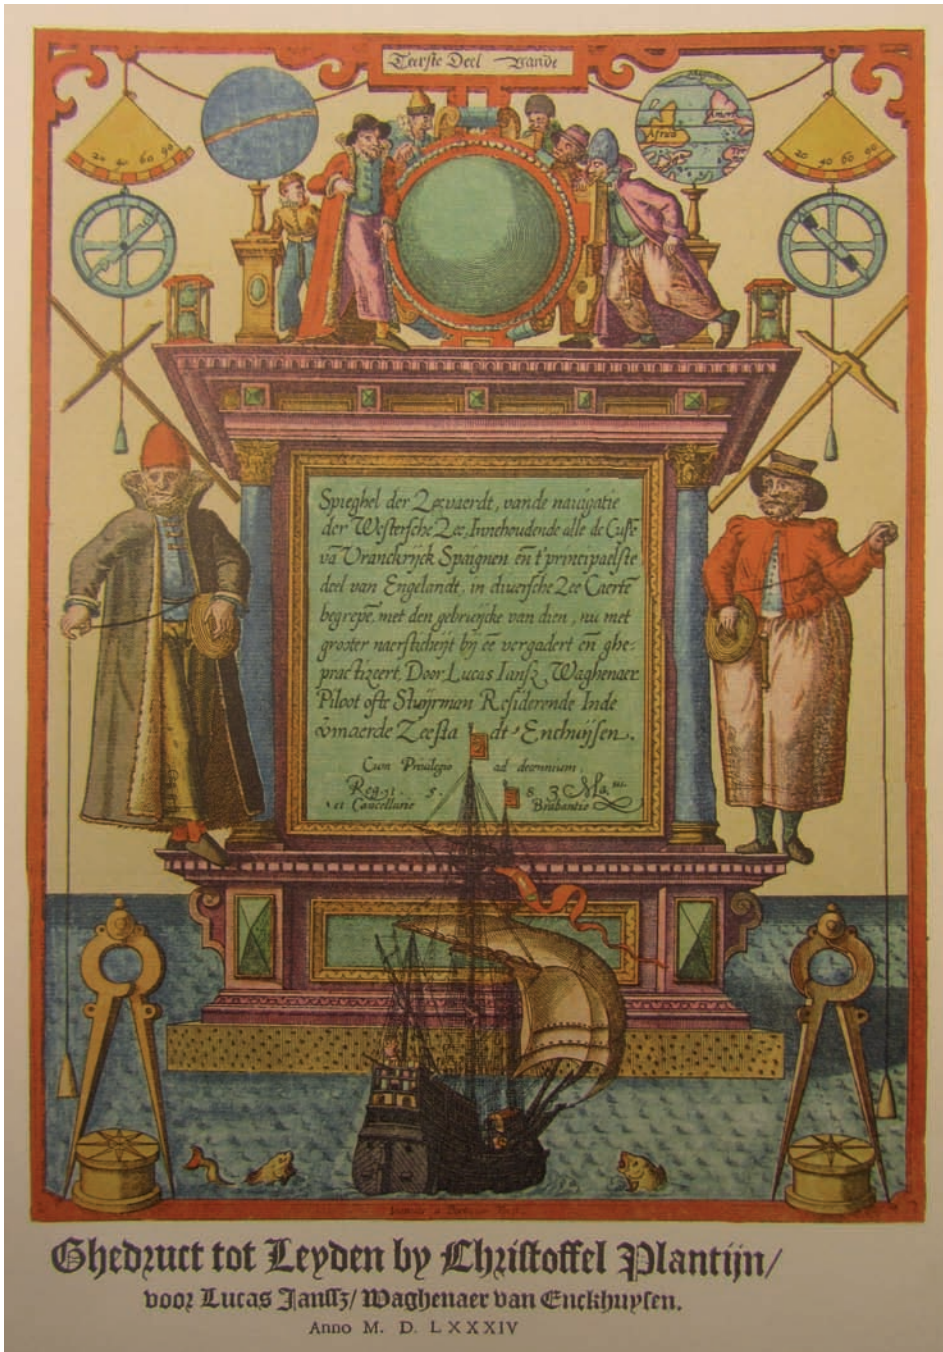 Teerste Deel vande
20 40 60 90
20 40 60 90
Africa
Spieghel der Zeevaerdt, vande navigatie
der Westersche Zee, Innehoudende alle de Custē
vā Vranckrijck Spaignen eñ t'principaelste
deel van Engelandt, in diversche Zee Caertē
begrepē, met den gebruijcke van dien, nu met
grooter naersticheijt bij eē vergadert eñ ghe-
practizeert, Door Lucas Iansz Waghenaer
Piloot ofte Stuijrman Residerende Inde
vmaerde Zeestadt Enchuijsen.
Cum Privilegio ad decennium,
Reg. 1 5 8 3 Ma.
et Cancellarie Brabantie
Ghedruct tot Leyden by Christoffel Plantijn/
voor Lucas Janssz/Waghenaer van Enckhuysen.
Anno M. D. LXXXIV